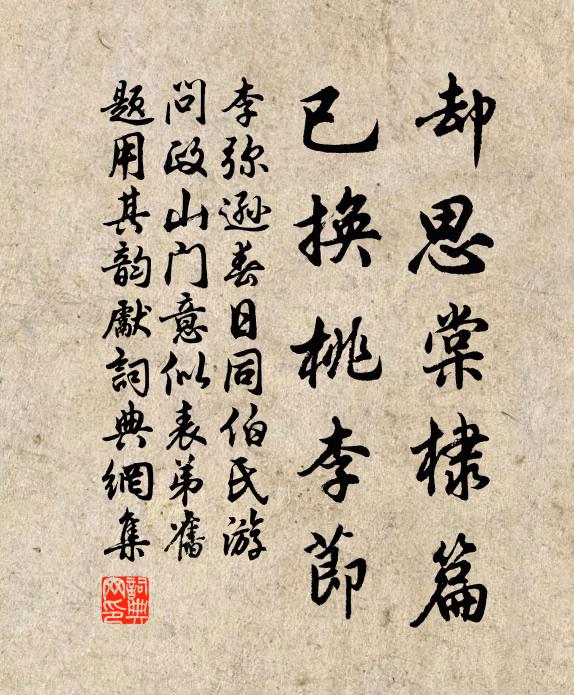 却思棠棣篇
已换桃李節
李弥遜春日同伯氏游
问政山门意似表弟舊
题用其韵獻詞典網集
詞典网印